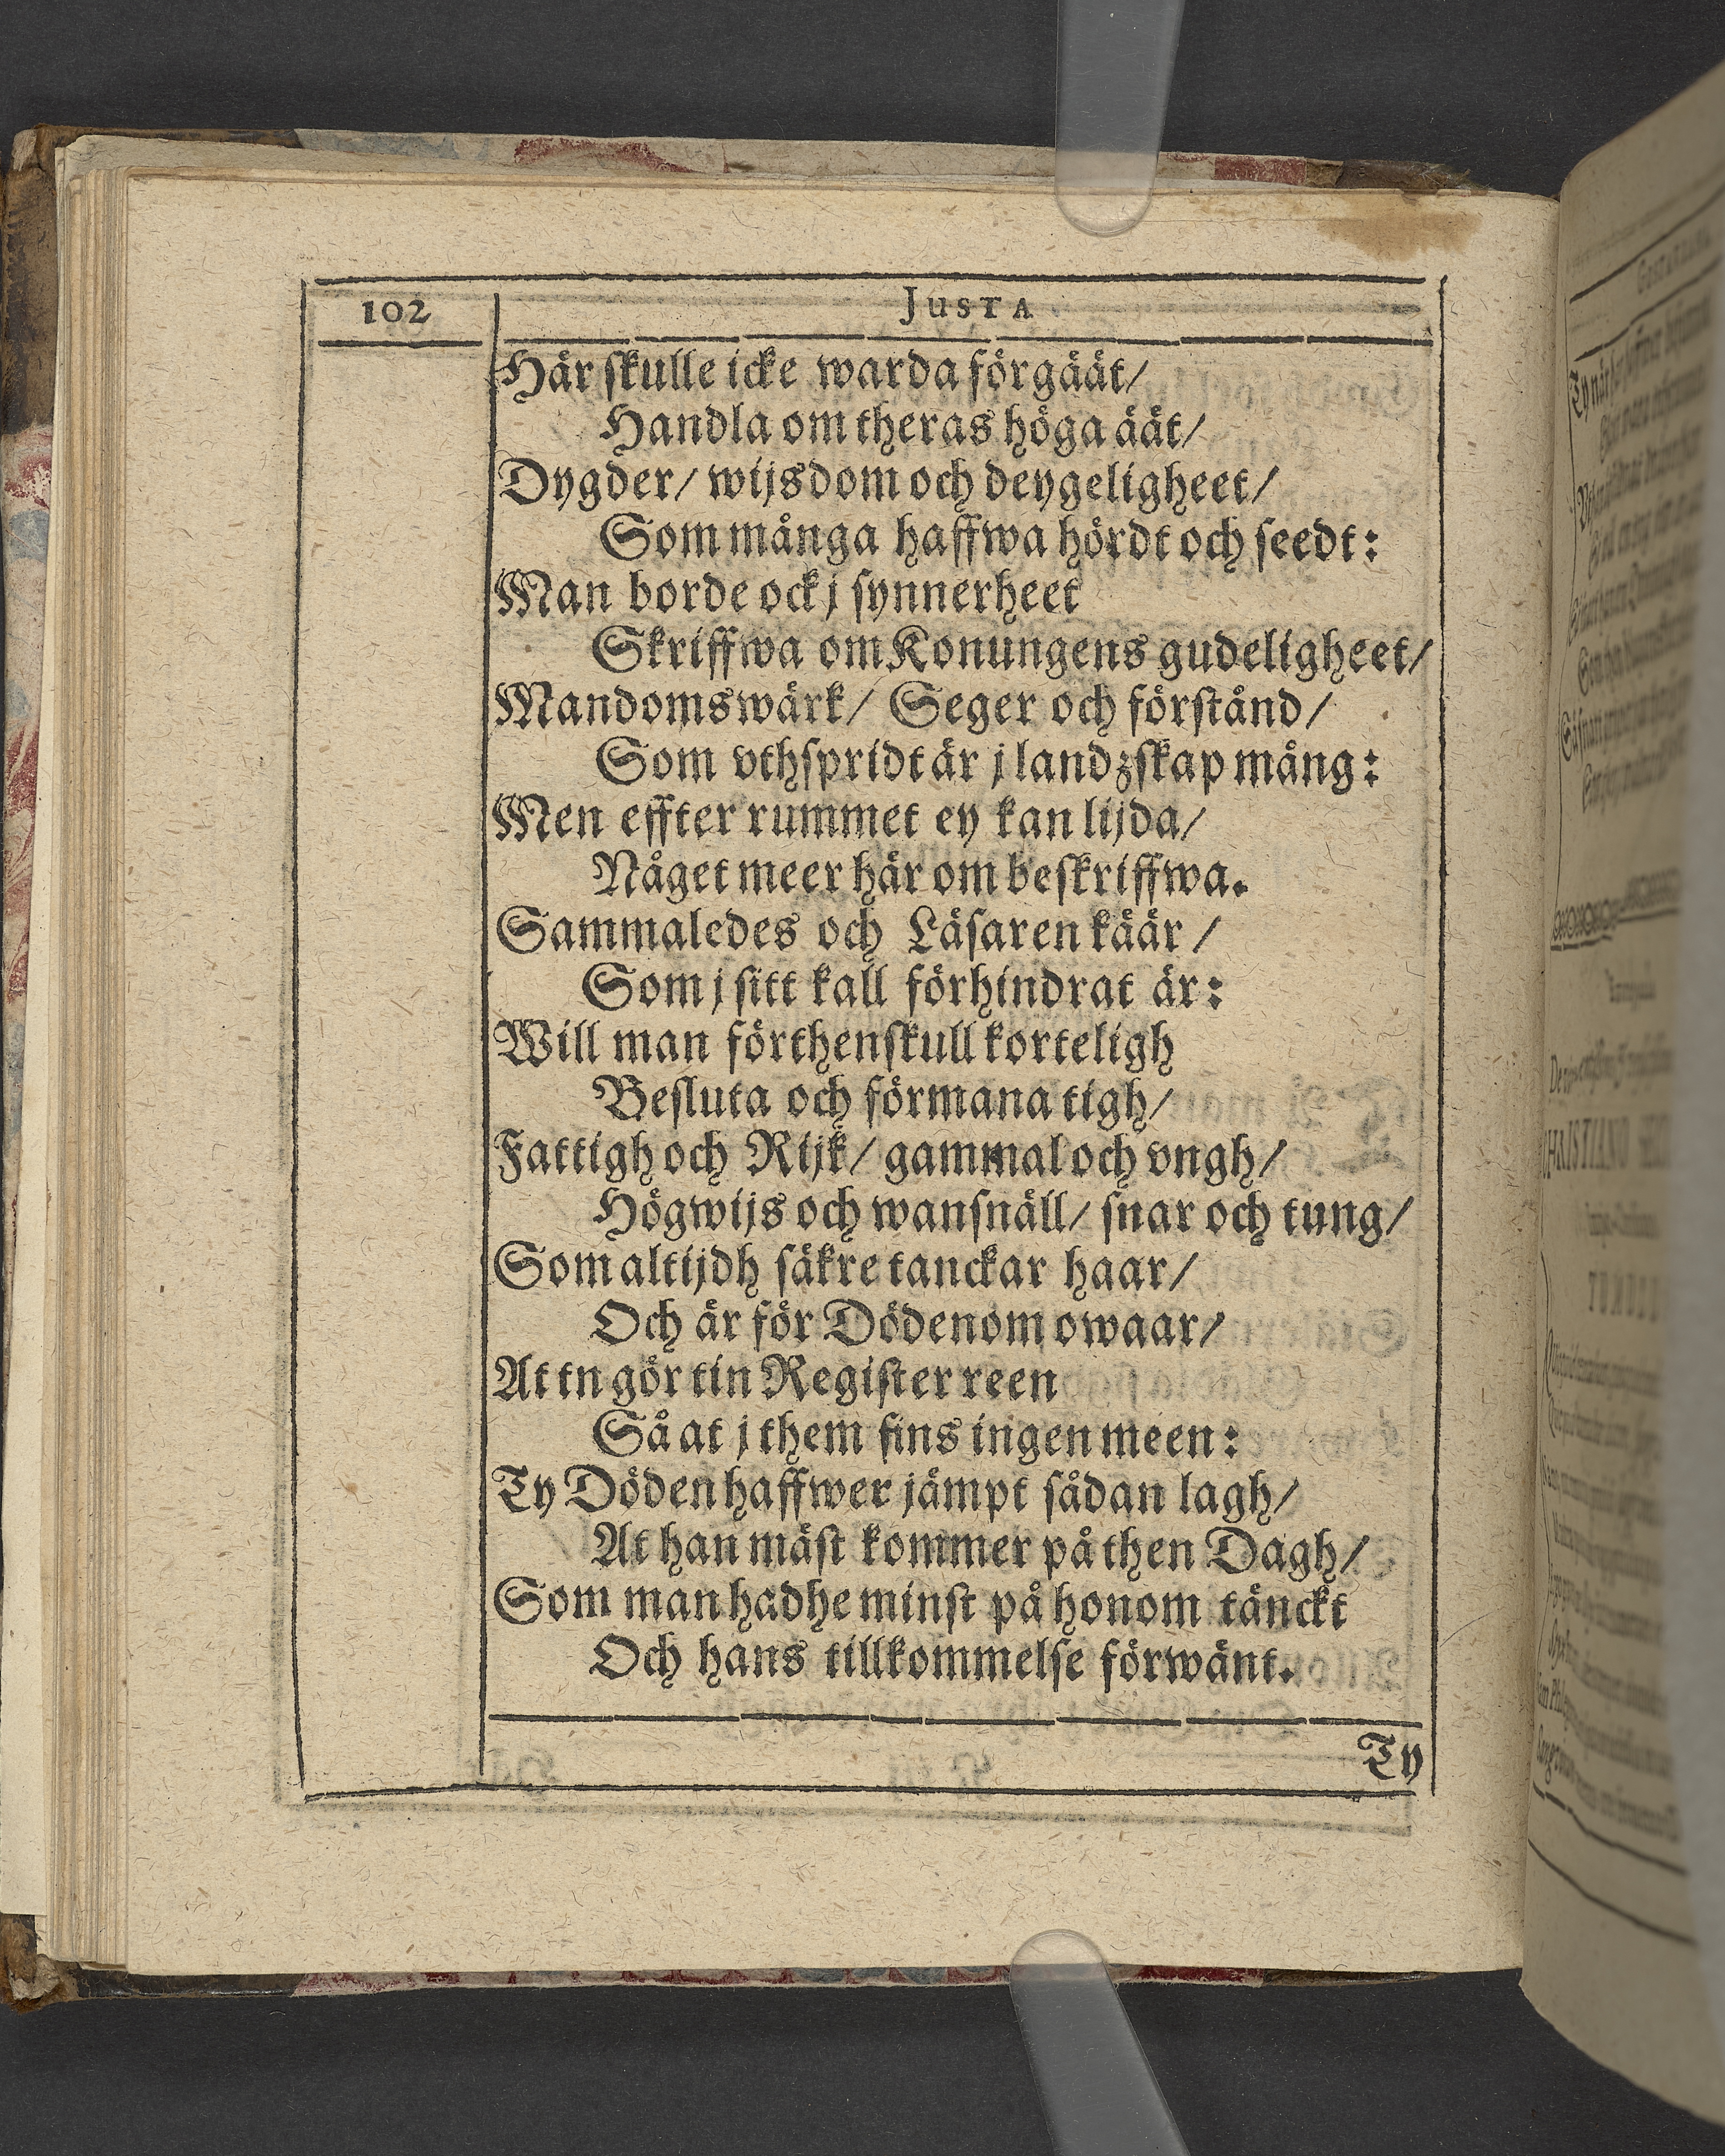 102
JUSTA
Här skulle icke warda förgäät/
Handla om theras höga äät/
Dygder/ wijsdom och deygeligheet/
Som många haffwa hördt och seedt:
Man borde ock j synnerheet
Skriffwa om Konungens gudeligheet/
Mandomswärk/ Seger och förstånd/
Som vthspridt är j landzskap mång:
Men effter rummet ey kan lijda/
Någet meer här om beskriffwa.
Sammaledes och Läsaren käär/
Som j sitt kall förhindrat är:
Will man förthenskull korteligh
Besluta och förmana tigh/
Fattigh och Rijk/ gammal och vngh/
Högwijs och wansnäll/ snar och tung/
Som altijdh säkre tanckar haar/
Och är för Dödenom owaar/
At tn gör tin Register reen
Så at j them fins ingen meen:
Ty Döden haffwer jämpt sådan lagh/
At han mäst kommer på then Dagh/
Som man hadhe minst på honom tänckt
Och hans tillkommelse förwänt.
Ty